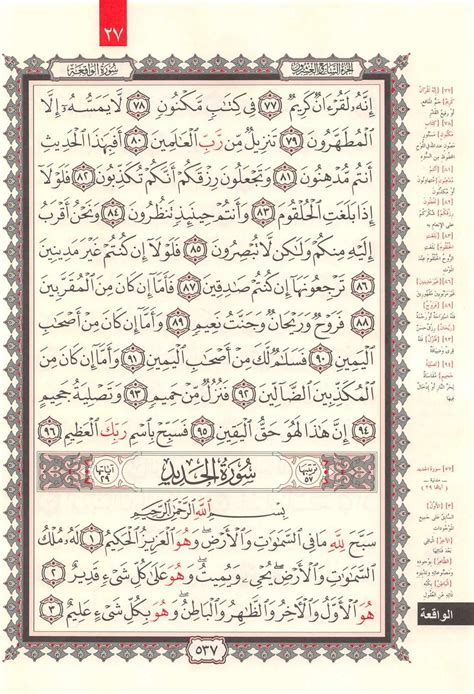 ٢٧
الجزء السابع والعشرون
سورة الواقعة
إِنَّهُۥ لَقُرْءَانٌ كَرِيمٌ ٧٧ فِى كِتَـٰبٍ مَّكْنُونٍ ٧٨ لَّا يَمَسُّهُۥٓ إِلَّا
ٱلْمُطَهَّرُونَ ٧٩ تَنزِيلٌ مِّن رَّبِّ ٱلْعَـٰلَمِينَ ٨٠ أَفَبِهَـٰذَا ٱلْحَدِيثِ
أَنتُم مُّدْهِنُونَ ٨١ وَتَجْعَلُونَ رِزْقَكُمْ أَنَّكُمْ تُكَذِّبُونَ ٨٢ فَلَوْلَآ
إِذَا بَلَغَتِ ٱلْحُلْقُومَ ٨٣ وَأَنتُمْ حِينَئِذٍ تَنظُرُونَ ٨٤ وَنَحْنُ أَقْرَبُ
إِلَيْهِ مِنكُمْ وَلَـٰكِن لَّا تُبْصِرُونَ ٨٥ فَلَوْلَآ إِن كُنتُمْ غَيْرَ مَدِينِينَ
٨٦ تَرْجِعُونَهَآ إِن كُنتُمْ صَـٰدِقِينَ ٨٧ فَأَمَّآ إِن كَانَ مِنَ ٱلْمُقَرَّبِينَ
٨٨ فَرَوْحٌ وَرَيْحَانٌ وَجَنَّتُ نَعِيمٍ ٨٩ وَأَمَّآ إِن كَانَ مِنْ أَصْحَـٰبِ
ٱلْيَمِينِ ٩٠ فَسَلَـٰمٌ لَّكَ مِنْ أَصْحَـٰبِ ٱلْيَمِينِ ٩١ وَأَمَّآ إِن كَانَ مِنَ
ٱلْمُكَذِّبِينَ ٱلضَّآلِّينَ ٩٢ فَنُزُلٌ مِّنْ حَمِيمٍ ٩٣ وَتَصْلِيَةُ جَحِيمٍ
٩٤ إِنَّ هَـٰذَا لَهُوَ حَقُّ ٱلْيَقِينِ ٩٥ فَسَبِّحْ بِٱسْمِ رَبِّكَ ٱلْعَظِيمِ ٩٦
ترتيبها ٥٧
سُورَةُ الحَدِيدِ
آياتها ٢٩
بِسْمِ ٱللَّهِ ٱلرَّحْمَـٰنِ ٱلرَّحِيمِ
سَبَّحَ لِلَّهِ مَا فِى ٱلسَّمَـٰوَٰتِ وَٱلْأَرْضِ ۖ وَهُوَ ٱلْعَزِيزُ ٱلْحَكِيمُ ١ لَهُۥ مُلْكُ
ٱلسَّمَـٰوَٰتِ وَٱلْأَرْضِ ۖ يُحْىِۦ وَيُمِيتُ ۖ وَهُوَ عَلَىٰ كُلِّ شَىْءٍ قَدِيرٌ ٢
هُوَ ٱلْأَوَّلُ وَٱلْـَٔاخِرُ وَٱلظَّـٰهِرُ وَٱلْبَاطِنُ ۖ وَهُوَ بِكُلِّ شَىْءٍ عَلِيمٌ ٣
٥٣٧
الواقعة